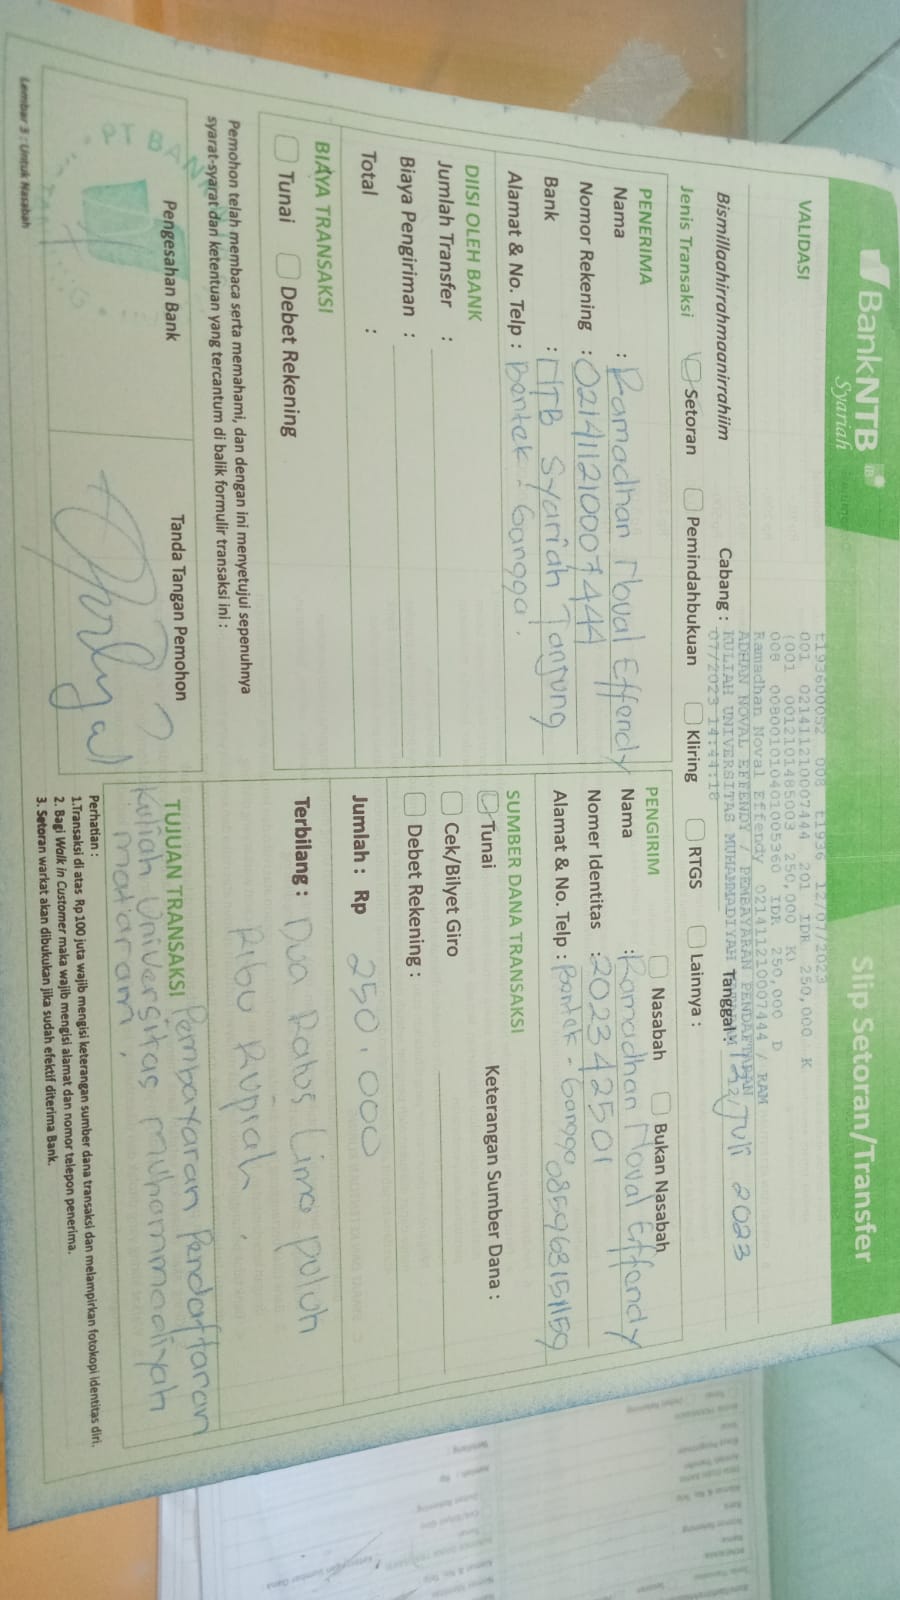 BankNTB
Syariah
Slip Setoran/Transfer
VALIDASI
t193600052 008 t1936 12/07/2023
001 021411210007444 201 IDR 250,000 K
(001 0012101485003 250,000 K)
008 0080010401005360 IDR 250,000 D
Ramadhan Noval Effendy 021411210007444 / RAM
ADHAN NOVAL EFFENDY / PEMBAYARAN PENDAFTARAN
KULIAH UNIVERSITAS MUHAMMADIYAH
07/2023 14:44:18
Bismillaahirrahmaanirrahiim
Cabang :
Tanggal : 12/Juli 2023
Jenis Transaksi
Setoran
Pemindahbukuan
Kliring
RTGS
Lainnya :
PENERIMA
Nama : Ramadhan Noval Effendy
Nomor Rekening : 021411210007444
Bank : NTB Syariah Tanjung
Alamat & No. Telp : Bentek - Gangga.
PENGIRIM
Nasabah
Bukan Nasabah
Nama : Ramadhan Noval Effendy
Nomer Identitas : 202342501
Alamat & No. Telp : Bentek - Gangga 085968151159
DIISI OLEH BANK
Jumlah Transfer :
Biaya Pengiriman :
Total :
SUMBER DANA TRANSAKSI
Tunai
Keterangan Sumber Dana :
Cek/Bilyet Giro
Debet Rekening :
BIAYA TRANSAKSI
Tunai
Debet Rekening
Jumlah : Rp 250.000
Terbilang : Dua Ratus Lima puluh
Ribu Rupiah,
Pemohon telah membaca serta memahami, dan dengan ini menyetujui sepenuhnya
syarat-syarat dan ketentuan yang tercantum di balik formulir transaksi ini :
Pengesahan Bank
PT BANK
Tanda Tangan Pemohon
TUJUAN TRANSAKSI Pembayaran Pendaftaran
Kuliah Universitas Muhammadiyah
Mataram.
Perhatian :
1.Transaksi di atas Rp 100 juta wajib mengisi keterangan sumber dana transaksi dan melampirkan fotokopi identitas diri.
2. Bagi Walk in Customer maka wajib mengisi alamat dan nomor telepon penerima.
3. Setoran warkat akan dibukukan jika sudah efektif diterima Bank.
Lembar 3 : Untuk Nasabah